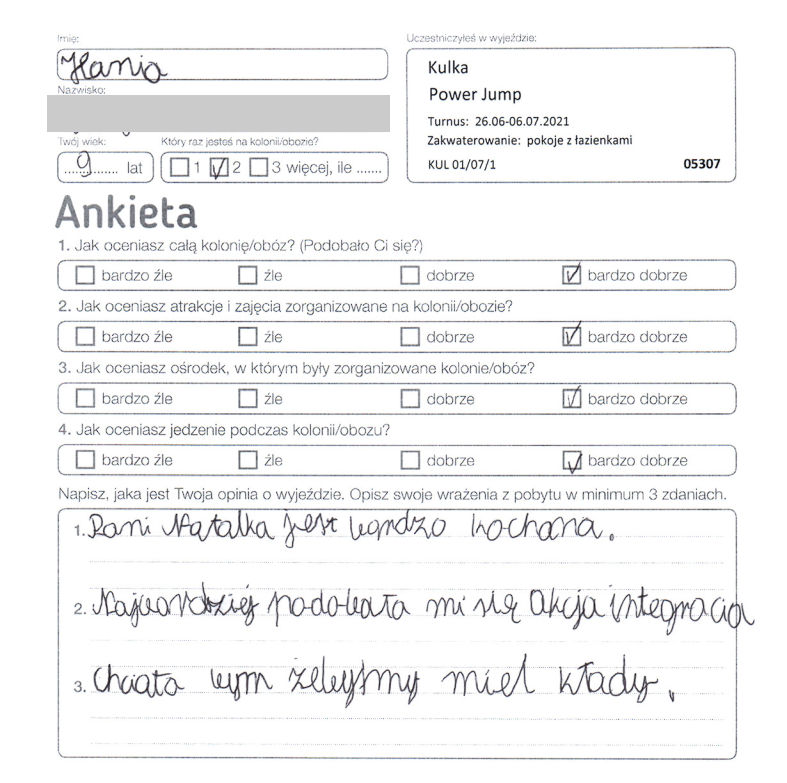 Imię:
Hania
Nazwisko:
Twój wiek:
9 lat
Który raz jesteś na kolonii/obozie?
1 2 3 więcej, ile .......
Uczestniczyłeś w wyjeździe:
Kulka
Power Jump
Turnus: 26.06-06.07.2021
Zakwaterowanie: pokoje z łazienkami
KUL 01/07/1 05307
Ankieta
1. Jak oceniasz całą kolonię/obóz? (Podobało Ci się?)
bardzo źle źle dobrze bardzo dobrze
2. Jak oceniasz atrakcje i zajęcia zorganizowane na kolonii/obozie?
bardzo źle źle dobrze bardzo dobrze
3. Jak oceniasz ośrodek, w którym były zorganizowane kolonie/obóz?
bardzo źle źle dobrze bardzo dobrze
4. Jak oceniasz jedzenie podczas kolonii/obozu?
bardzo źle źle dobrze bardzo dobrze
Napisz, jaka jest Twoja opinia o wyjeździe. Opisz swoje wrażenia z pobytu w minimum 3 zdaniach.
1. Pani Natalka jest bardzo kochana.
2. Najbardziej podobała mi się akcja integracja
3. Chciała bym żebyśmy mieli kłady.